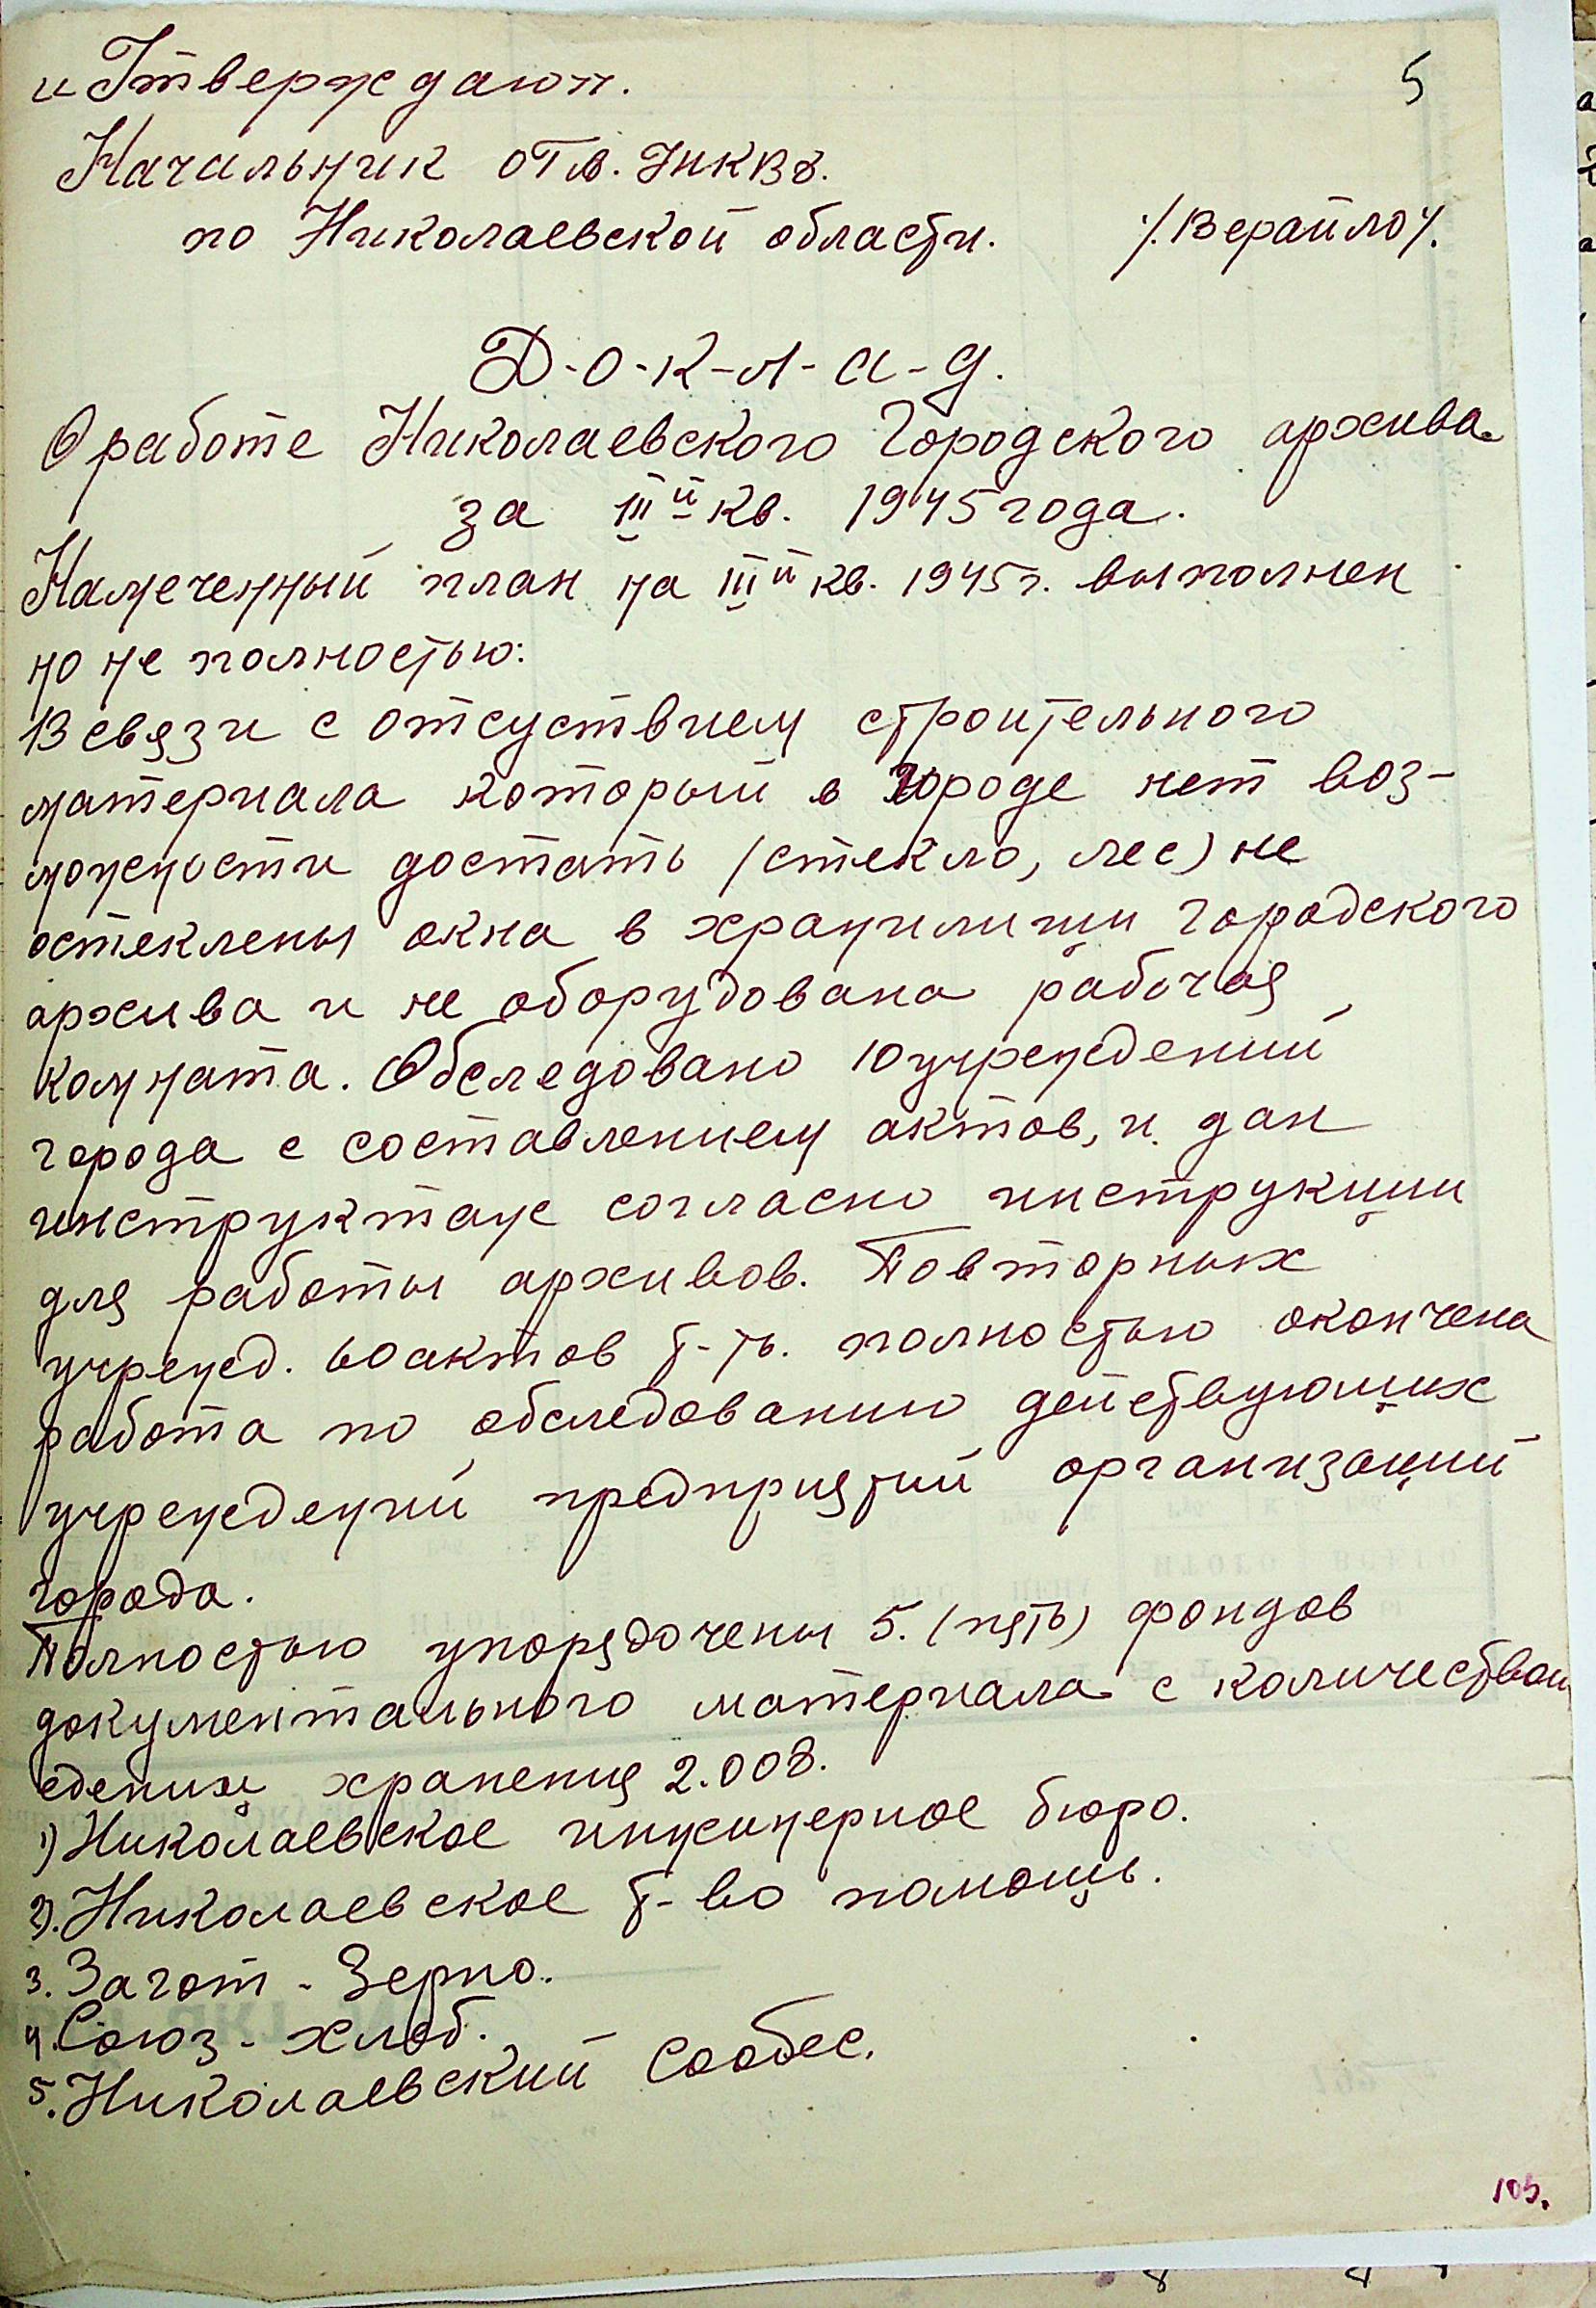 „Утверждаю".
5
Начальник отд. УНКВД.
по Николаевской области. /.Верайло/.
Д-о-к-л-а-д.
О работе Николаевского Городского архива
за III й кв. 1945 года.
Намеченный план на III й кв. 1945 г. выполнен
но не полностью:
В связи с отсуствием строительного
материала который в городе нет воз-
можности достать (стекло, лес) не
остеклены окна в хранилищи городского
архива и не оборудована рабочая
комната. Обследовано 10 учреждений
города с составлением актов, и дан
инструктаж согласно инструкции
для работы архивов. Повторных
учрежд. 60 актов т-т. полностью окончена
работа по обследованию действующих
учреждений предприятий организаций
города.
Полностью упорядочены 5. (пять) фондов
документального материала с количеством
едениц хранения 2.008.
1) Николаевское инженерное бюро.
2). Николаевское т-во помощь.
3. Загот - Зерно.
4. Союз - хлеб.
5. Николаевский Собес.
103.